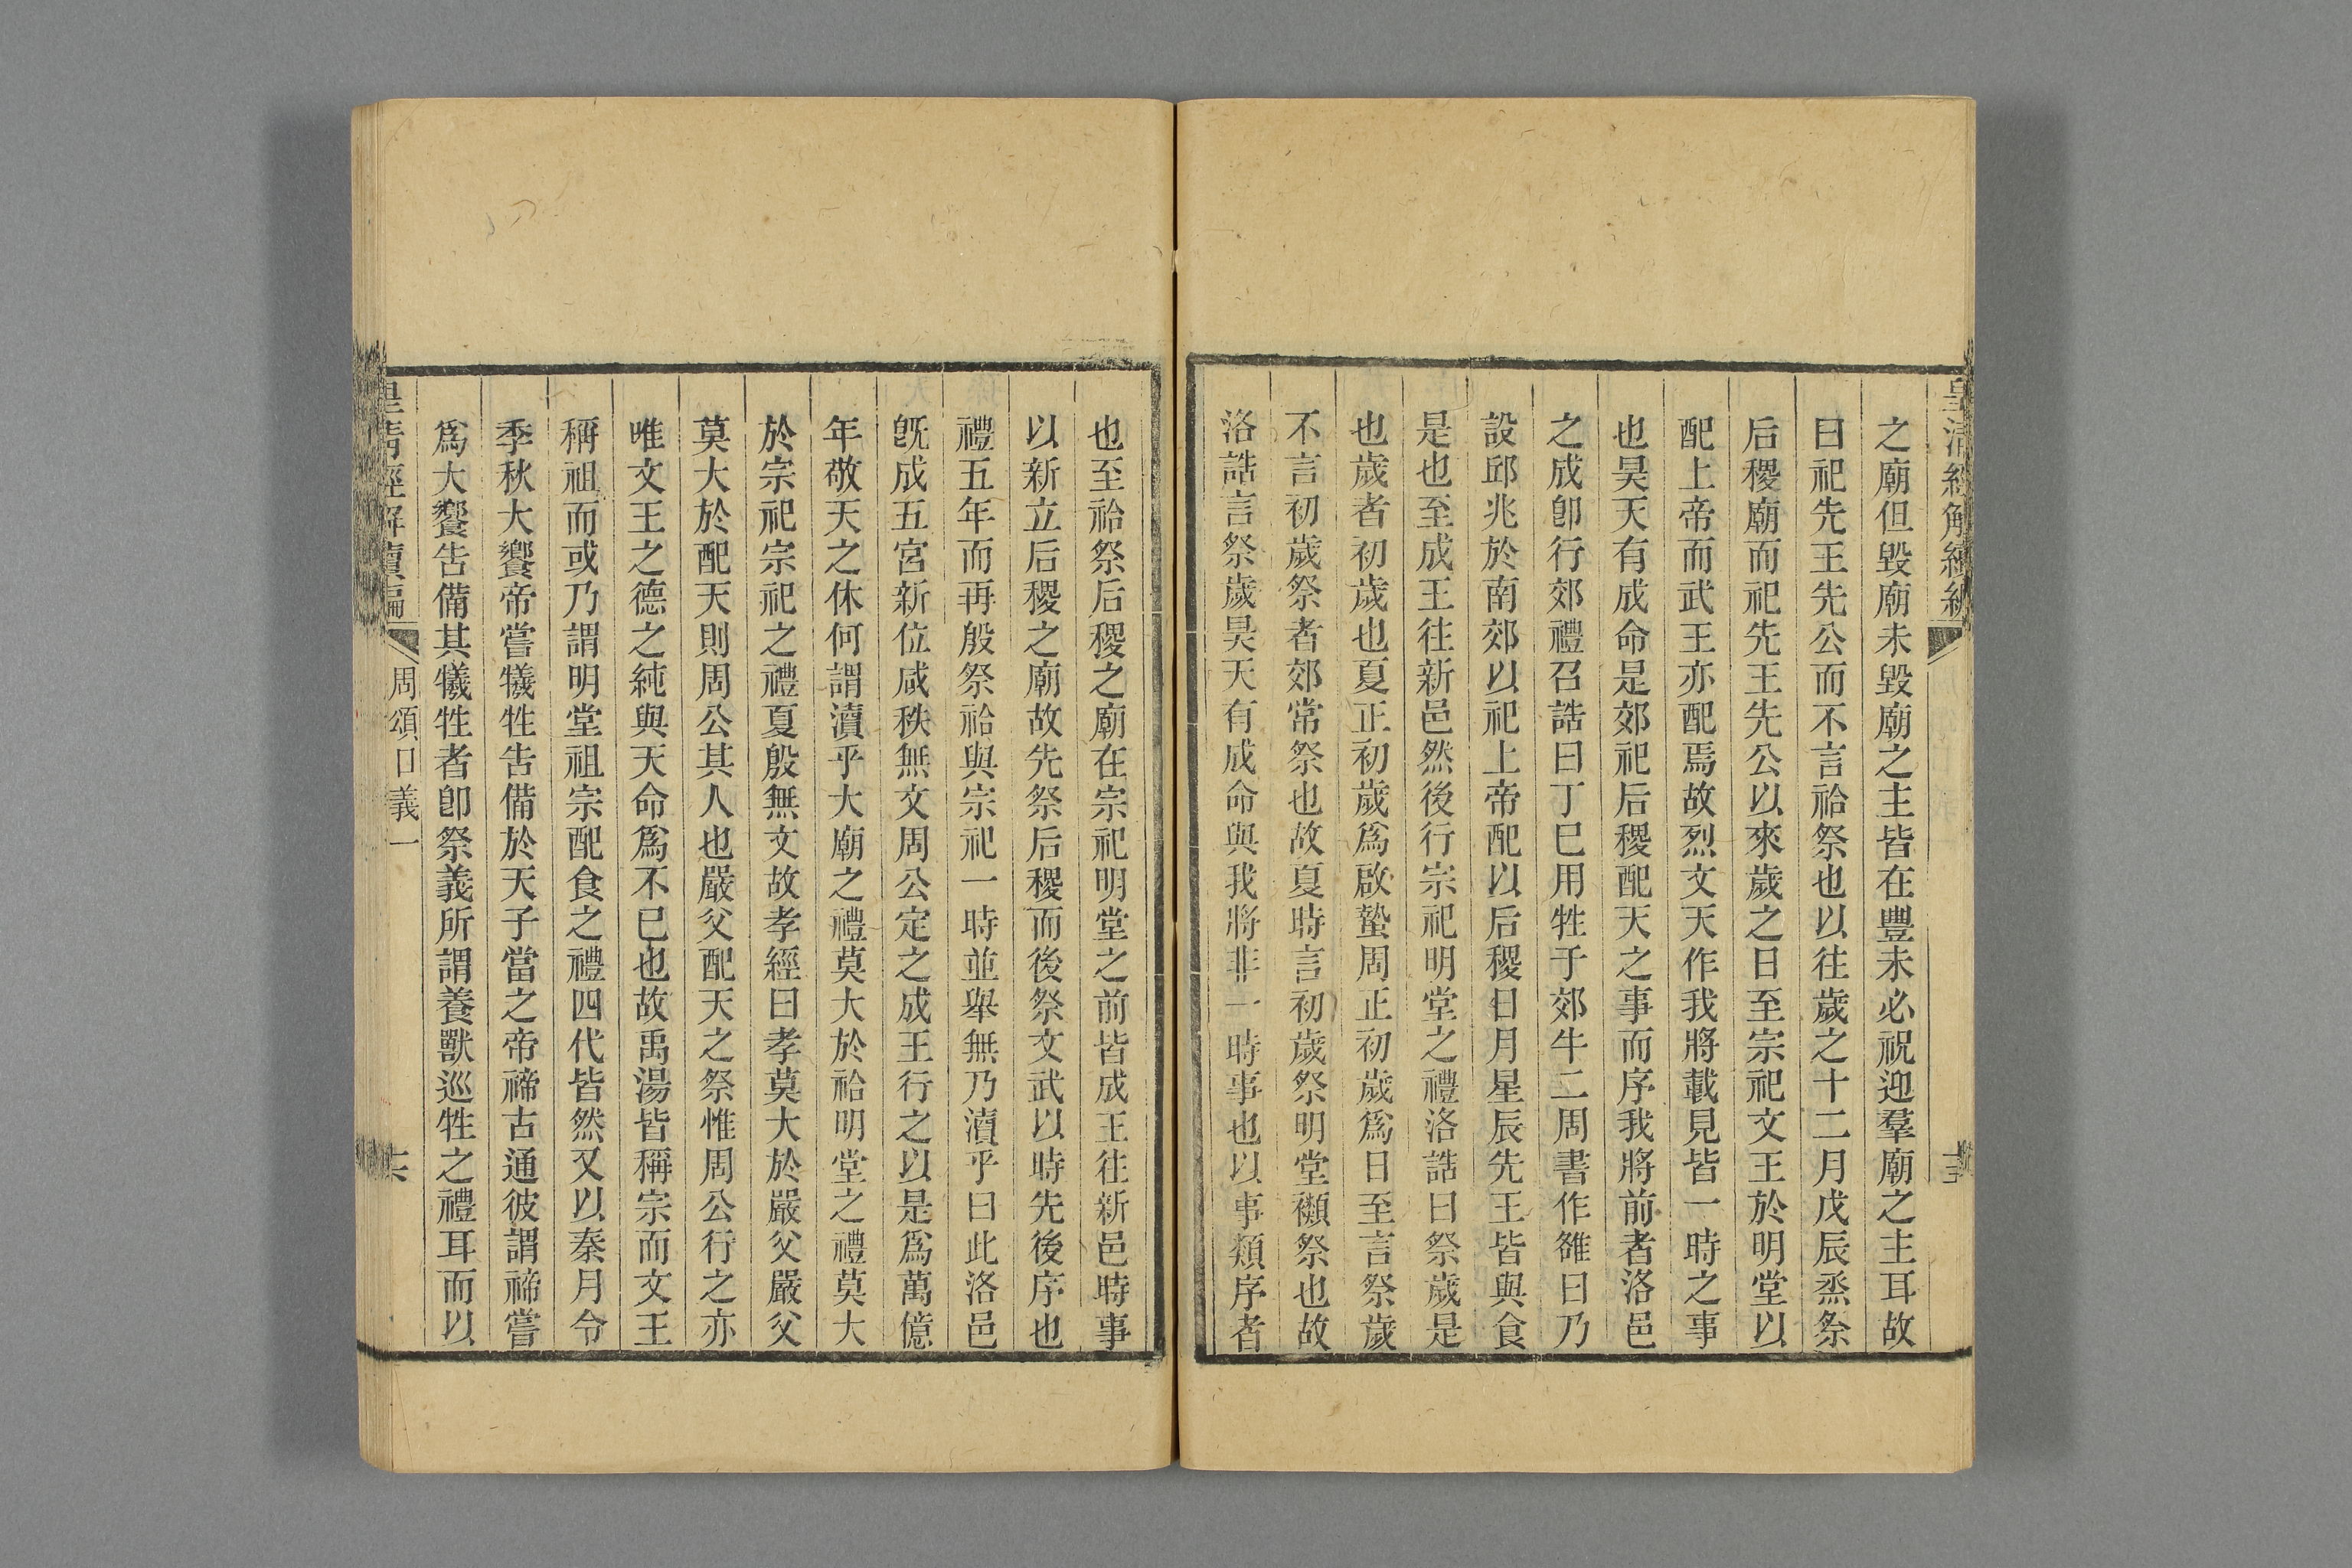 之廟但毀廟未毀廟之主皆在豐未必祝迎羣廟之主耳故
曰祀先王先公而不言祫祭也以往歲之十二月戊辰烝祭
后稷廟而祀先王先公以來歲之日至宗祀文王於明堂以
配上帝而武王亦配焉故烈文天作我將載見皆一時之事
也昊天有成命是郊祀后稷配天之事而序我將前者洛邑
之成卽行郊禮召誥曰丁巳用牲于郊牛二周書作雒曰乃
設邱兆於南郊以祀上帝配以后稷日月星辰先王皆與食
是也至成王往新邑然後行宗祀明堂之禮洛誥曰祭歲是
也歲者初歲也夏正初歲爲啟蟄周正初歲爲日至言祭歲
不言初歲祭者郊常祭也故夏時言初歲祭明堂襰祭也故
洛誥言祭歲昊天有成命與我將非一時事也以事類序者
也至祫祭后稷之廟在宗祀明堂之前皆成王往新邑時事
以新立后稷之廟故先祭后稷而後祭文武以時先後序也
禮五年而再殷祭祫與宗祀一時並舉無乃瀆乎曰此洛邑
旣成五宮新位咸秩無文周公定之成王行之以是爲萬億
年敬天之休何謂瀆乎大廟之禮莫大於祫明堂之禮莫大
於宗祀宗祀之禮夏殷無文故孝經曰孝莫大於嚴父嚴父
莫大於配天則周公其人也嚴父配天之祭惟周公行之亦
唯文王之德之純與天命爲不已也故禹湯皆稱宗而文王
稱祖而或乃謂明堂祖宗配食之禮四代皆然又以秦月令
季秋大饗帝嘗犧牲告備於天子當之帝禘古通彼謂禘嘗
爲大饗告備其犧牲者卽祭義所謂養獸巡牲之禮耳而以
皇清經解續編
周頌口義一